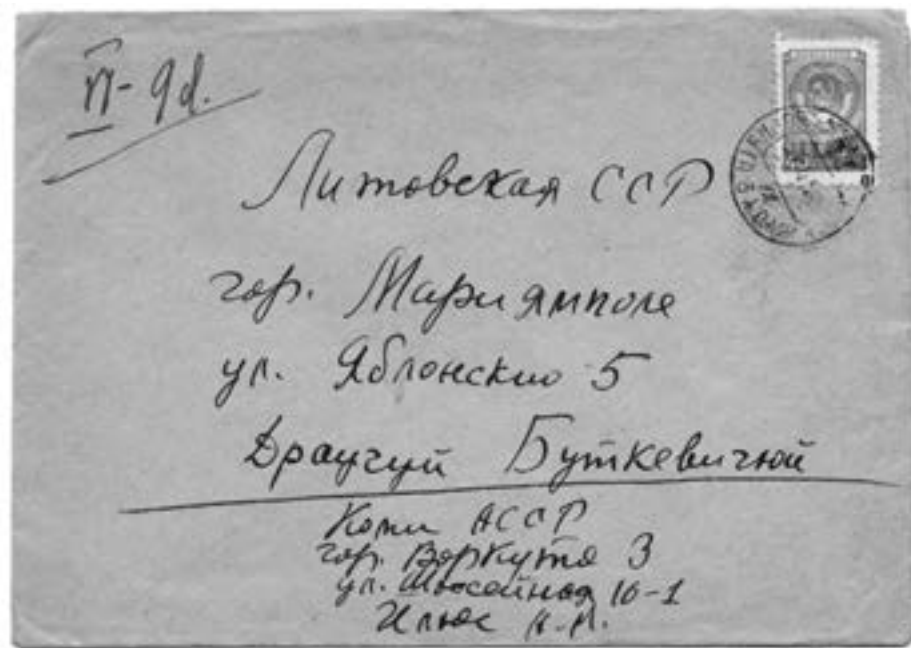 VI-9d.
Литовская ССР
гор. Мариямполе
ул. Яблонскио 5
Драугуй Буткевичюй
Коми АССР
гор. Воркута 3
ул. Шоссейная 10-1